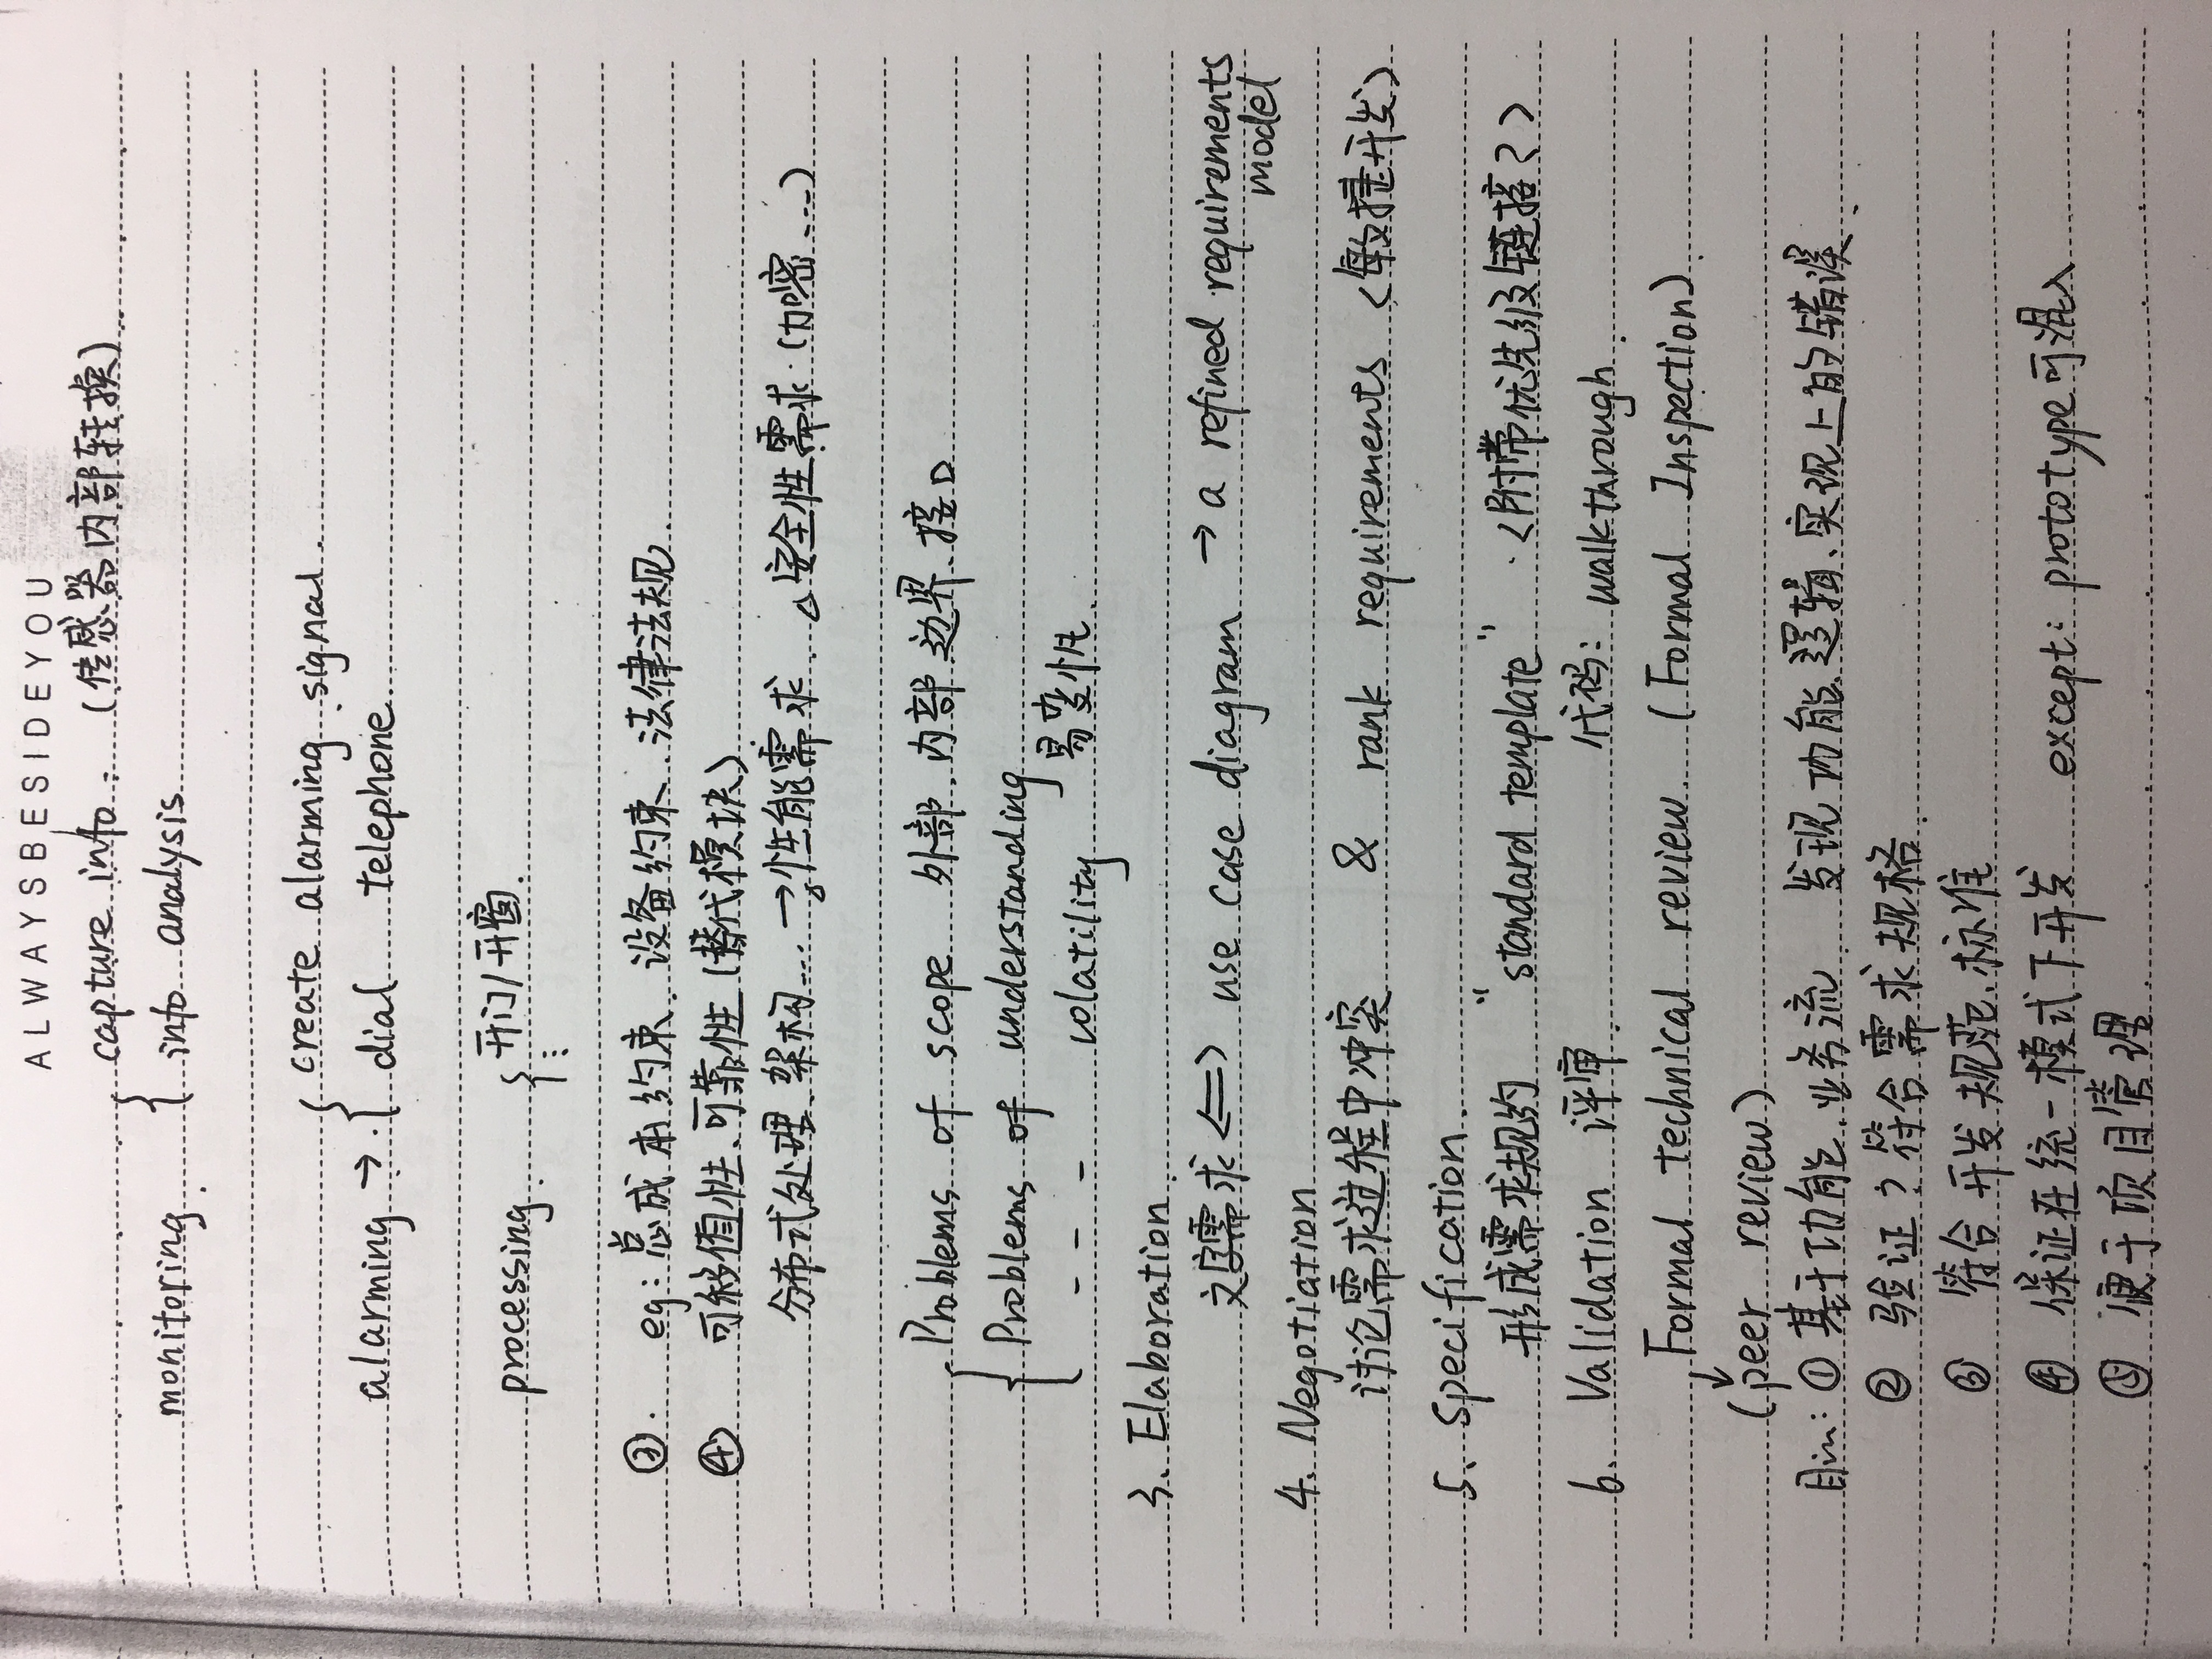 ALWAYSBESIDEYOU
capture info. (传感器内部转换)
monitoring. { info analysis
create alarming signal.
alarming → { dial telephone
processing. { 开门/开窗.
⋮
③. eg: 总成本约束. 设备约束. 法律法规.
④ 可移值性、可靠性 (替代模块).
分布式处理、架构... → 性能需求. △安全性需求 (加密...)
Problems of scope 外部. 内部 边界、接口
{ Problems of understanding
- - - volatility 易变性.
3. Elaboration.
文字需求 <=> use case diagram → a refined requirements
model
4. Negotiation
讨论需求过程中冲突 & rank requirements <敏捷开发>
5. Specification.
形成需求规约 "standard template" <附带优先级链接?>
6. Validation 评审. 代码: walkthrough.
Formal technical review. (Formal Inspection).
↓
(peer review)
目: ① 基于功能、业务流. 发现功能、逻辑、实现上的错误.
② 验证? 符合需求规格.
③ 符合开发规范、标准
④ 保证在统一模式下开发 except: prototype可混入
⑤ 便于项目管理.